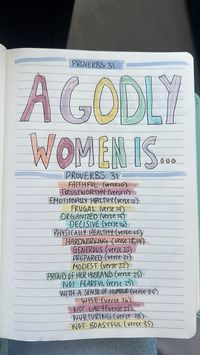 PROVERBS 31
A GODLY
WOMEN IS...
PROVERBS 31
FAITHFUL (verse 10)
TRUSTWORTHY (verse 11)
EMOTIONALLY HEALTHY (verse 12)
FRUGAL (verse 14)
ORGANIZED (verse 15)
DECISIVE (verse 16)
PHYSICALLY HEALTHY (verse 17)
HARDWORKING (verse 18, 19)
GENEROUS (verse 20)
PREPARED (verse 21)
MODEST (verse 22)
PROUD OF HER HUSBAND (verse 23)
NOT FEARFUL (verse 25)
WITH A SENSE OF HUMOUR (verse 25)
WISE (verse 26)
NOT LAZY (verse 27)
NURTURING (verse 28)
NOT BOASTFUL (verse 31)